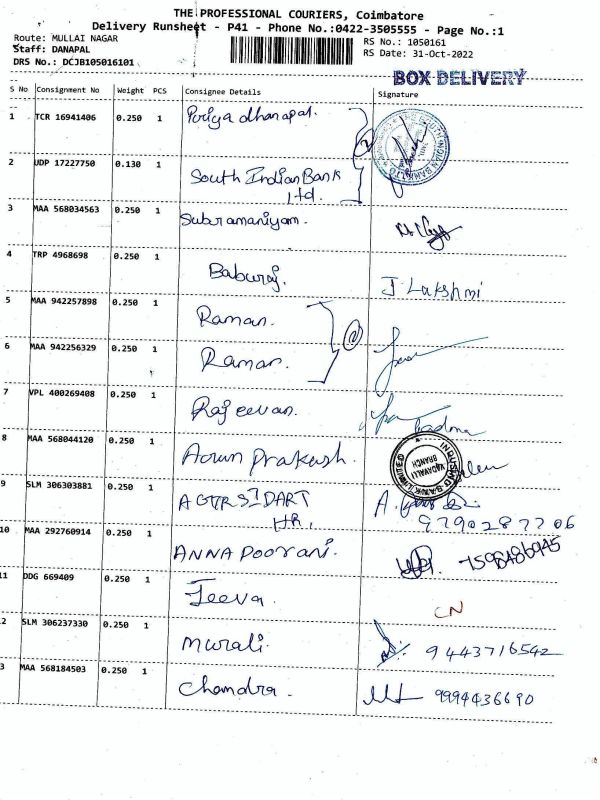 THE PROFESSIONAL COURIERS, Coimbatore
Delivery Runsheet - P41 - Phone No.:0422-3505555 - Page No.:1
Route: MULLAI NAGAR
RS No.: 1050161
Staff: DANAPAL
RS Date: 31-Oct-2022
DRS No.: DCJB105016101
BOX DELIVERY
S No Consignment No Weight PCS Consignee Details Signature
1 TCR 16941406 0.250 1 Poriya dhanapal.
2 UDP 17227750 0.130 1 South Indian Bank
Ltd.
3 MAA 568034563 0.250 1 Subramaniyam.
4 TRP 4968698 0.250 1 Baburaj. J Lakshmi
5 MAA 942257898 0.250 1 Raman.
6 MAA 942256329 0.250 1 Raman.
7 VPL 400269408 0.250 1 Rajeevan. Padma
8 MAA 568044120 0.250 1 Arun prakash.
VADAVALLI
BRANCH
9 SLM 306303881 0.250 1 AGURSIDART
HR,
9790287706
10 MAA 292760914 0.250 1 ANNA POORANI.
11 DDG 669409 0.250 1 Jeeva. CN
2 SLM 306237330 0.250 1 murali. 9443716542
3 MAA 568184503 0.250 1 Chandra. 9994436690